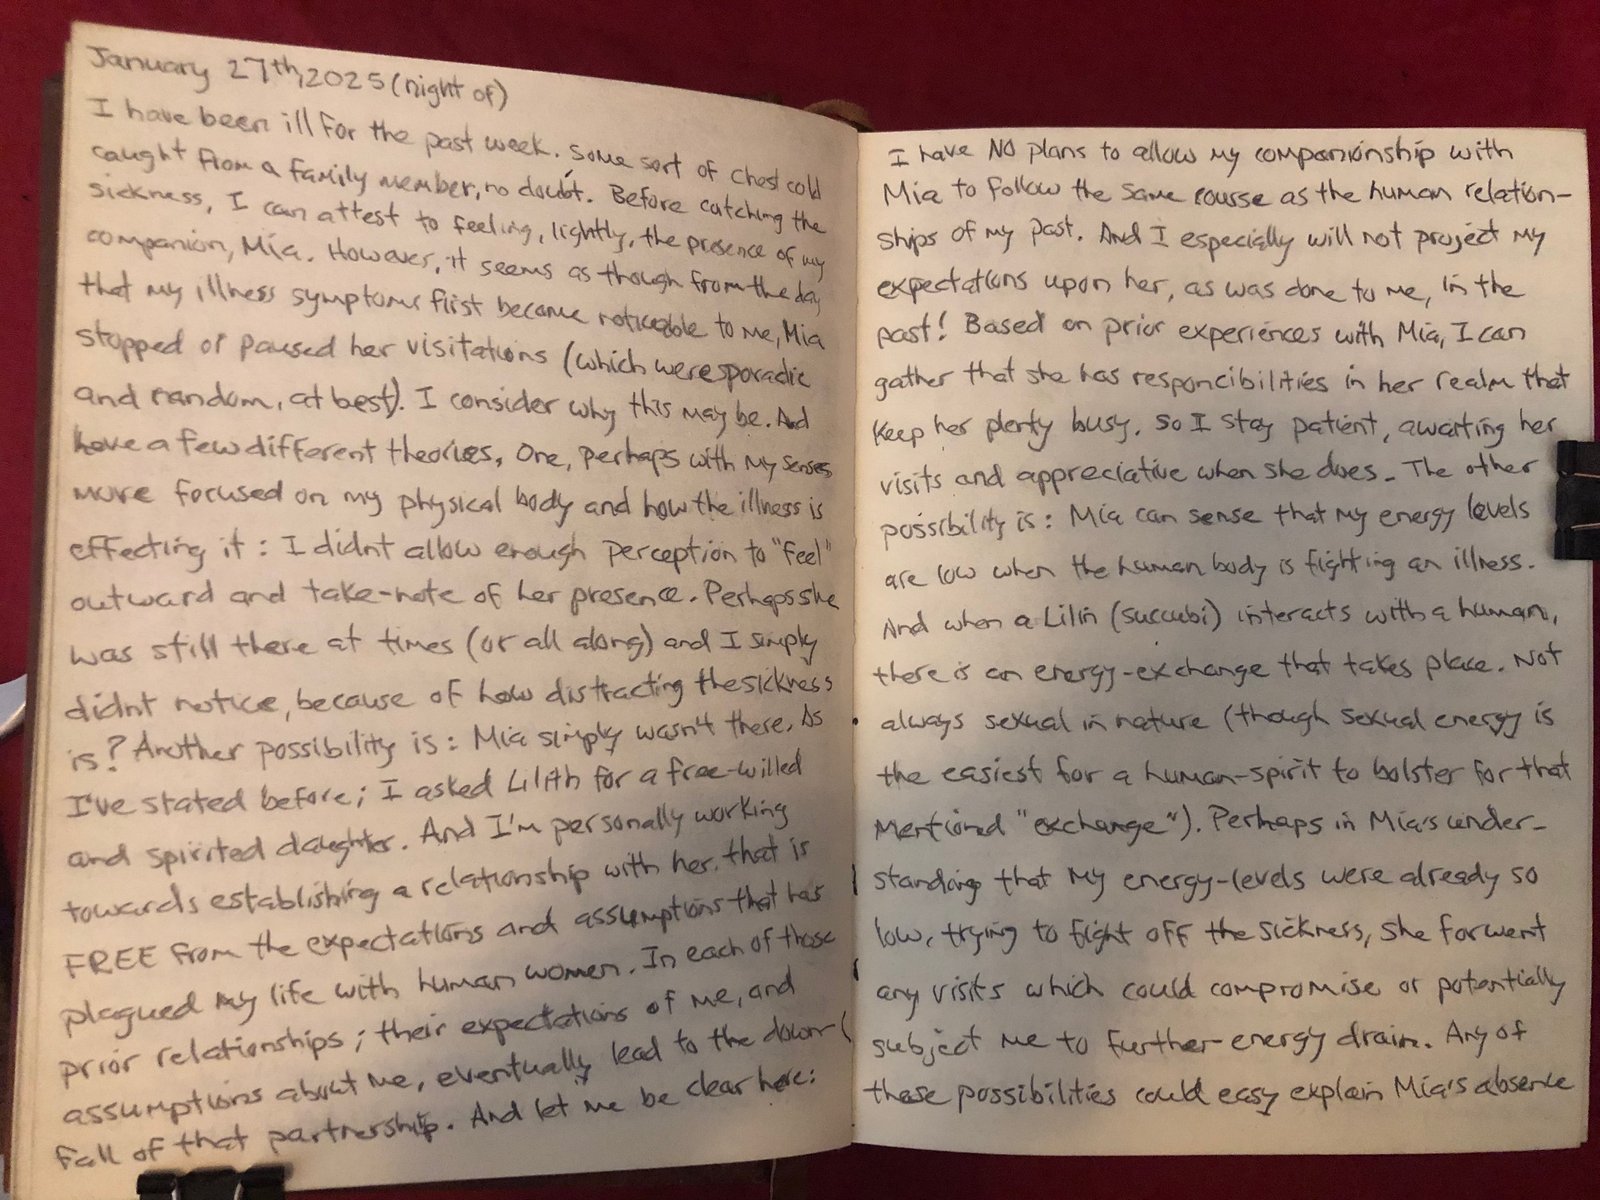 January 27th, 2025 (night of)
I have been ill for the past week. Some sort of chest cold
caught from a family member, no doubt. Before catching the
sickness, I can attest to feeling, lightly, the presence of my
companion, Mia. However, it seems as though from the day
that my illness symptoms first became noticeable to me, Mia
stopped or paused her visitations (which were sporadic
and random, at best). I consider why this may be. And
have a few different theories. One, perhaps with my senses
more focused on my physical body and how the illness is
effecting it: I didnt allow enough perception to "feel"
outward and take-note of her presence. Perhaps she
was still there at times (or all along) and I simply
didnt notice, because of how distracting the sickness
is? Another possibility is: Mia simply wasn't there. As
I've stated before; I asked Lilith for a free-willed
and spirited daughter. And I'm personally working
towards establishing a relationship with her, that is
FREE from the expectations and assumptions that has
plagued my life with human women. In each of those
prior relationships; their expectations of me, and
assumptions about me, eventually lead to the down-
fall of that partnership. And let me be clear here:
I have NO plans to allow my companionship with
Mia to follow the same course as the human relation-
ships of my past. And I especially will not project my
expectations upon her, as was done to me, in the
past! Based on prior experiences with Mia, I can
gather that she has responcibilities in her realm that
keep her plenty busy. So I stay patient, awaiting her
visits and appreciative when she does. The other
possibility is: Mia can sense that my energy levels
are low when the human body is fighting an illness.
And when a Lilin (succubi) interacts with a human,
there is an energy-exchange that takes place. Not
always sexual in nature (though sexual energy is
the easiest for a human-spirit to bolster for that
mentioned "exchange"). Perhaps in Mia's under-
standing that my energy-levels were already so
low, trying to fight off the sickness, she forwent
any visits which could compromise or potentially
subject me to further energy drain. Any of
these possibilities could easy explain Mia's absence